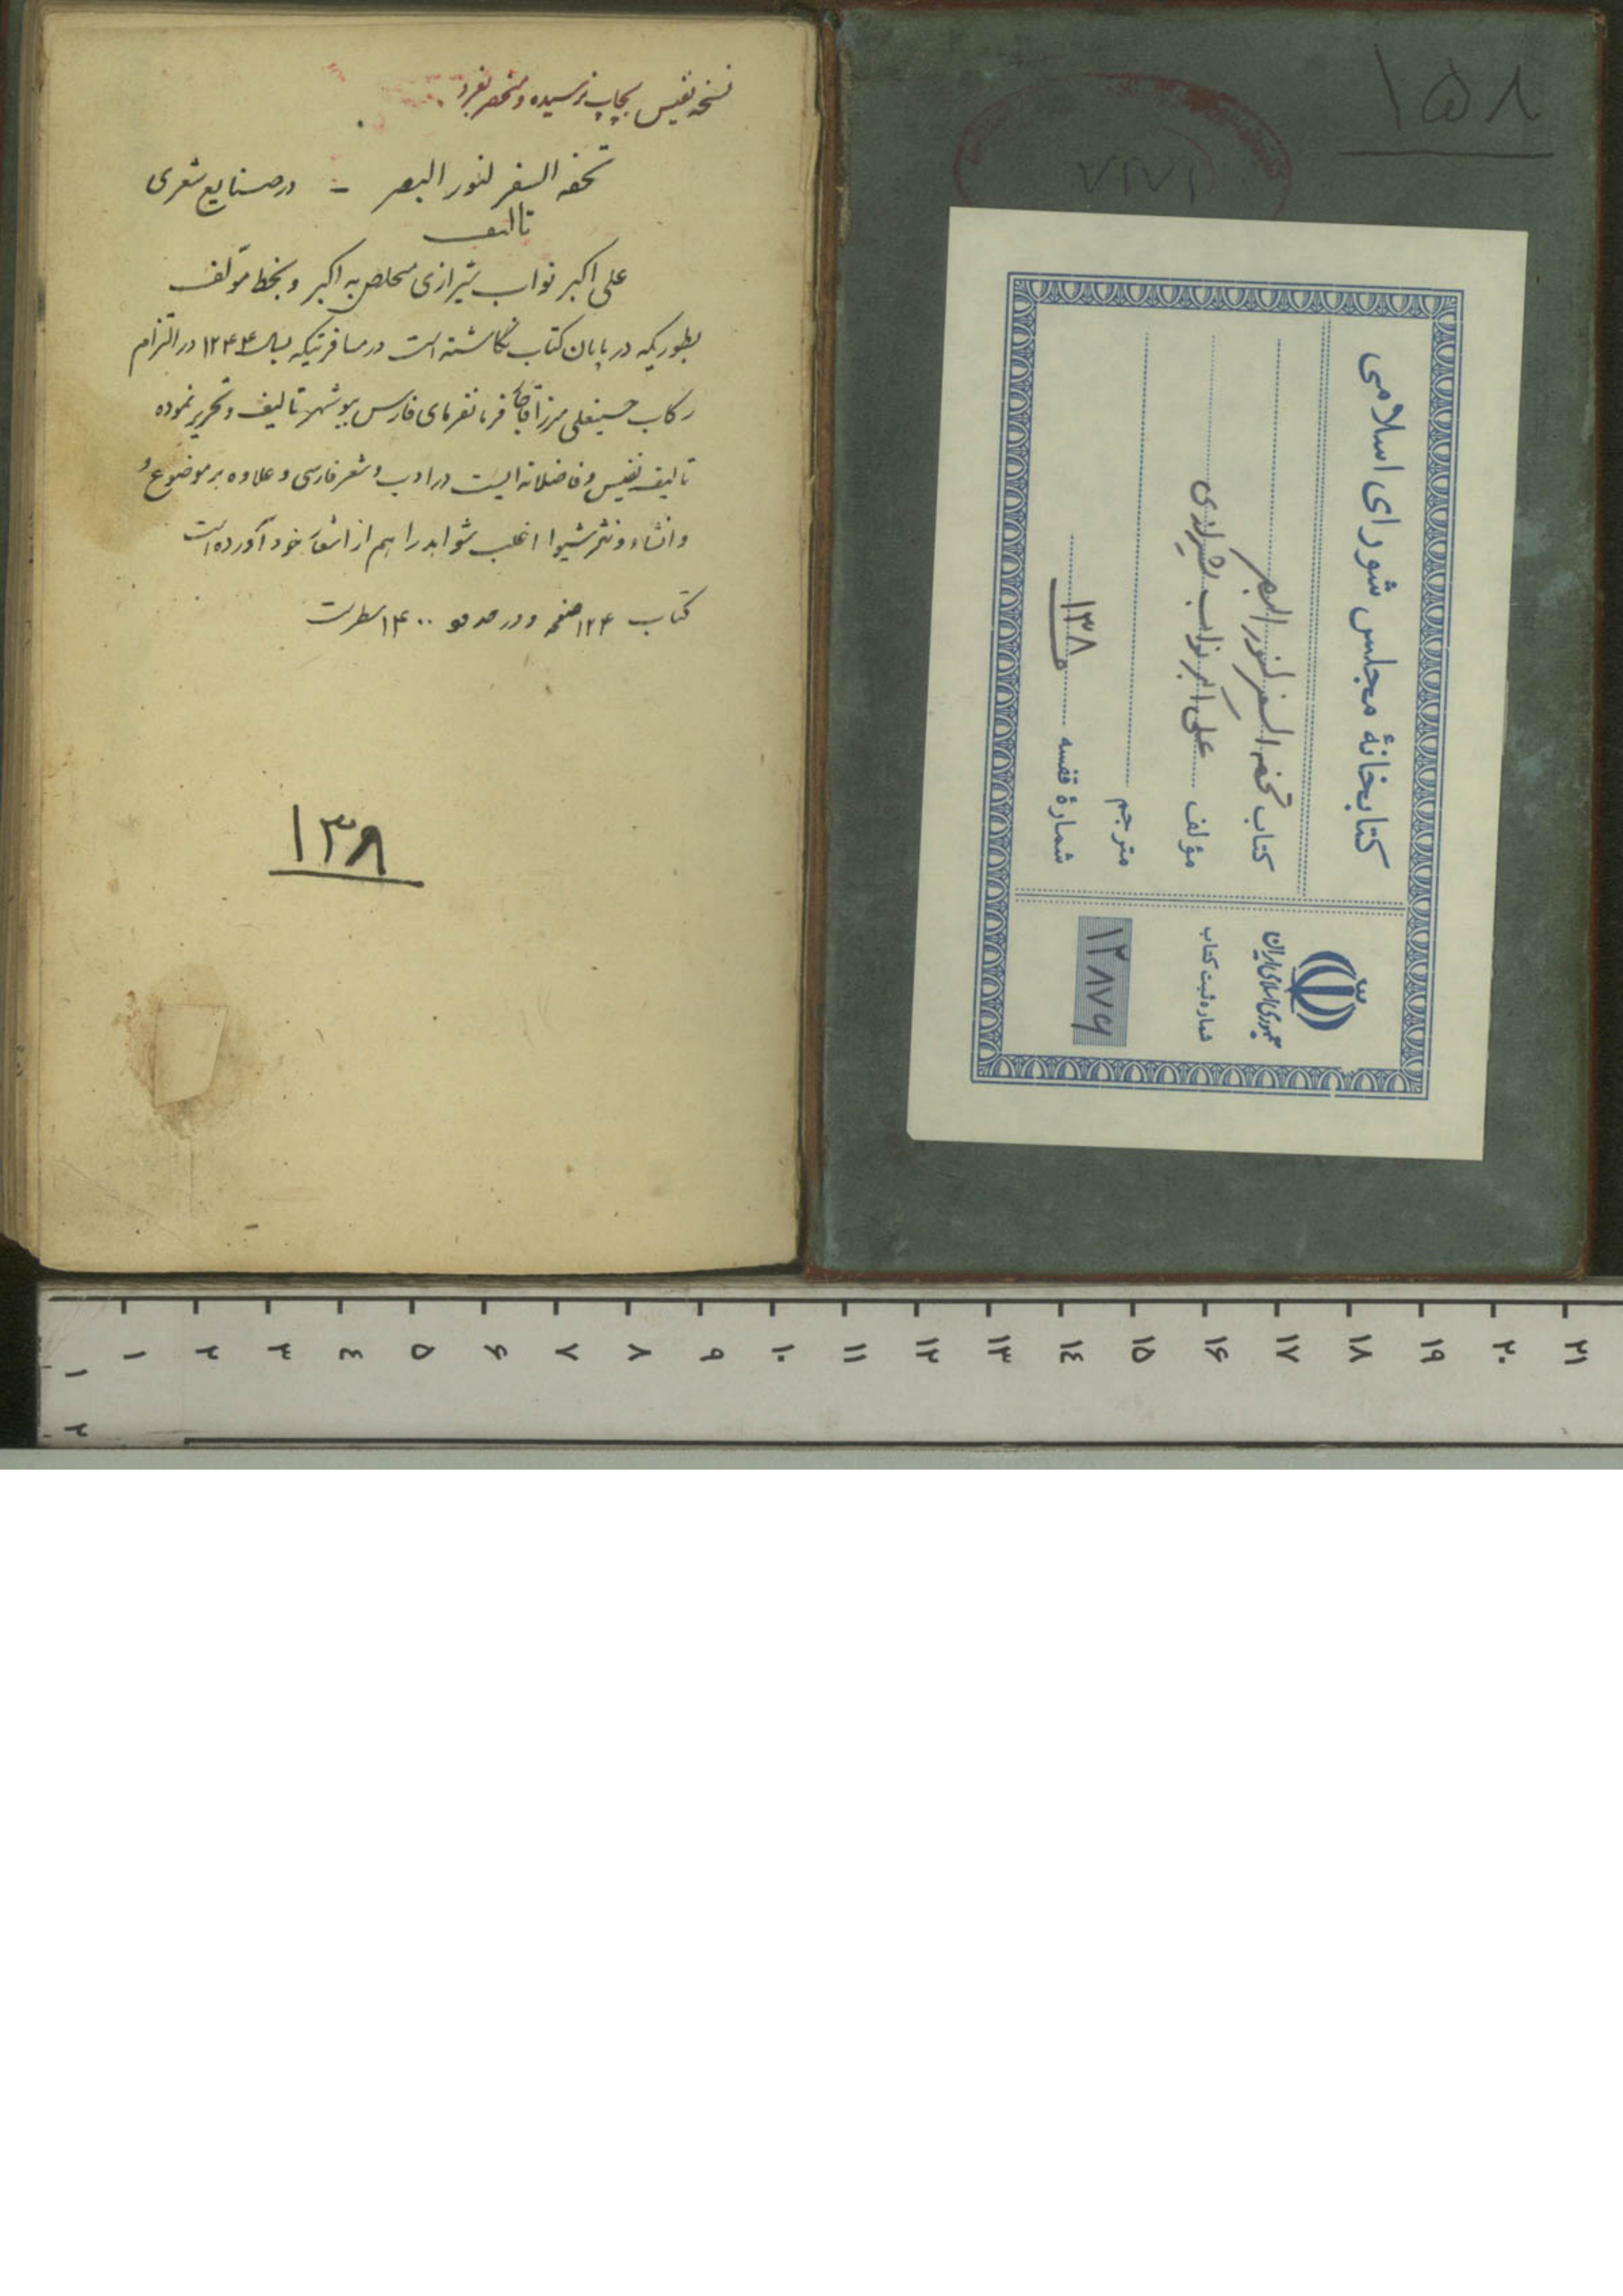 نسخه نفیس بچاپ نرسیده و منحصر بفرد
تحفه السفر لنور البصر - در صنایع شعری
تالیف
علی اکبر نواب شیرازی متخلص به اکبر و بخط مؤلف
بطوریکه در پایان کتاب نگاشته است در مسافرتیکه بسال ۱۲۴۴ در التزام
رکاب حسینعلی میرزا قاجار فرمانفرمای فارس ببوشهر تالیف و تحریر نموده
تالیف نفیس و فاضلانه ایست در ادب و شعر فارسی و علاوه بر موضوع و
و انشاء و نثر شیوا اغلب شواهد را هم از اشعار خود آورده است
کتاب ۱۲۴ صفحه و در حدود ۱۴۰۰ سطر است
۱۳۸
۱۵۸
۷۱۷۱
کتابخانهٔ مجلس شورای اسلامی
کتاب تحفه السفر لنور البصر
مؤلف علی اکبر نواب شیرازی
مترجم
شمارهٔ قفسه ۱۳۸
جمهوری اسلامی ایران
شماره ثبت کتاب
۱۳۸۷۶
۱ ۲ ۳ ٤ ۵ ۶ ۷ ۸ ۹ ۱۰ ۱۱ ۱۲ ۱۳ ۱٤ ۱۵ ۱۶ ۱۷ ۱۸ ۱۹ ۲۰ ۲۱
۱
۲